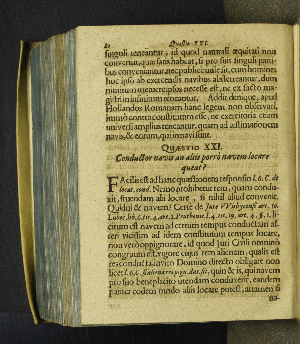 80 Quæstio XXI.
singuli teneantur; id quod naturali æquitati non
convenit, quæ satis habeat, si pro suis singuli parti-
bus conveniantur: nec publicè utile sit, cum homines
hac ipsa ab exercendis navibus absterreantur, dum
nimirum metus reipsa necesse est, ne ex facto ma-
gistri in infinitum teneantur. Addit denique, apud
Hollandos Romanam hanc legem non observari,
immò contra constitutum esse, ne exercitoria etiam
universi amplius teneantur, quam ad æstimationem
navis, & eorum, qui in navi sunt.
QUÆSTIO XXI.
Conductor navis an aliis porrò navem locare
queat?
FAcilis est ad hanc quæstionem responsio l. 6. C. de
locat. cond. Nemo prohibetur rem, quam condu-
xit, fruendam alii locare, si nihil aliud convenit.
Quid si navem? Certè de Jure
Lubec. lib. 6. tit. 4. art. 2.
citum est navem ad certum tempus conductam al-
teri vicissim ad idem constitutum tempus locare,
non verò oppignorare, id quod Juri Civili omninò
congruum est, vigore cujus rem alienam, qualis est
res conducta, invito Domino directò obligare non
licet
pro suo beneplacito utendam conduxerit, eandem
pariter eodem modo aliis locare potest, attamen si
na-